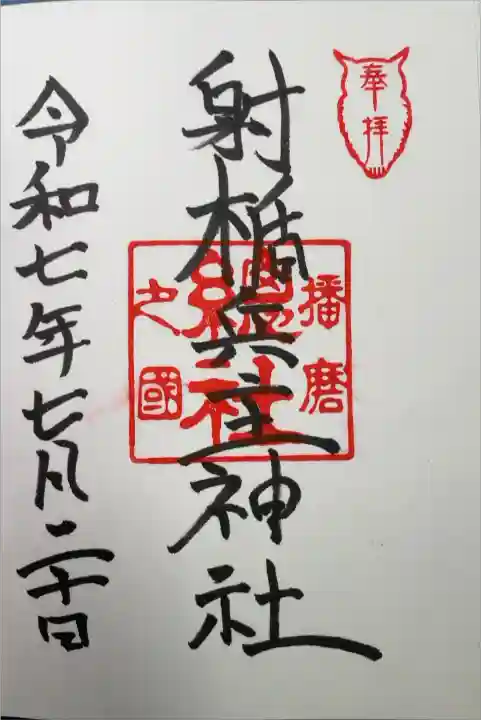 奉拝
射楯兵主神社
播磨
總社
之國
令和七年七月二十日